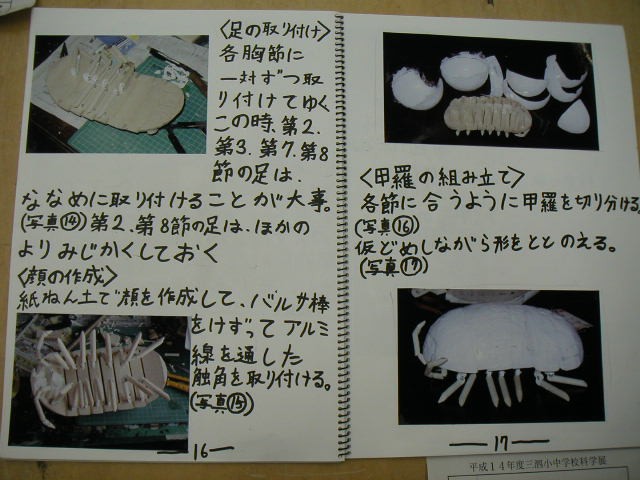 〈足の取り付け〉
各胸節に
一対ずつ取
り付けてゆく
この時、第2.
第3.第7.第8
節の足は、
ななめに取り付けることが大事。
(写真⑭)第2、第8節の足は、ほかの
よりみじかくしておく
〈顔の作成〉
紙ねん土で顔を作成して、バルサ棒
をけずってアルミ
線を通した
触角を取り付ける。
(写真⑮)
16
〈甲羅の組み立て〉
各節に合うように甲羅を切り分ける
(写真⑯)
仮どめしながら形をととのえる。
(写真⑰)
17
平成14年度三泗小中学校科学展